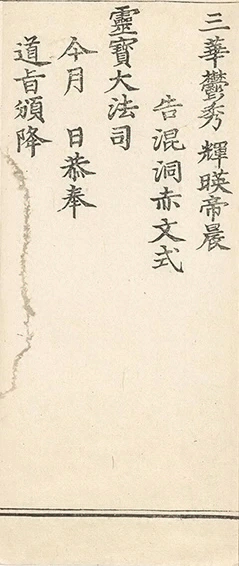 三華鬱秀輝暎帝晨
告混洞赤文式
靈寶大法司
今月　日恭奉
道旨頒降